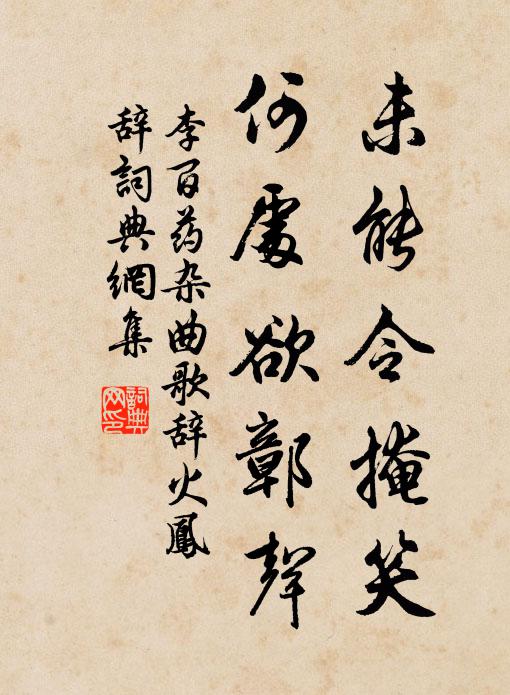 未能令掩笑
何處欲鄣聲
李百药杂曲歌辞火鳳
辞詞典網集
詞典网印